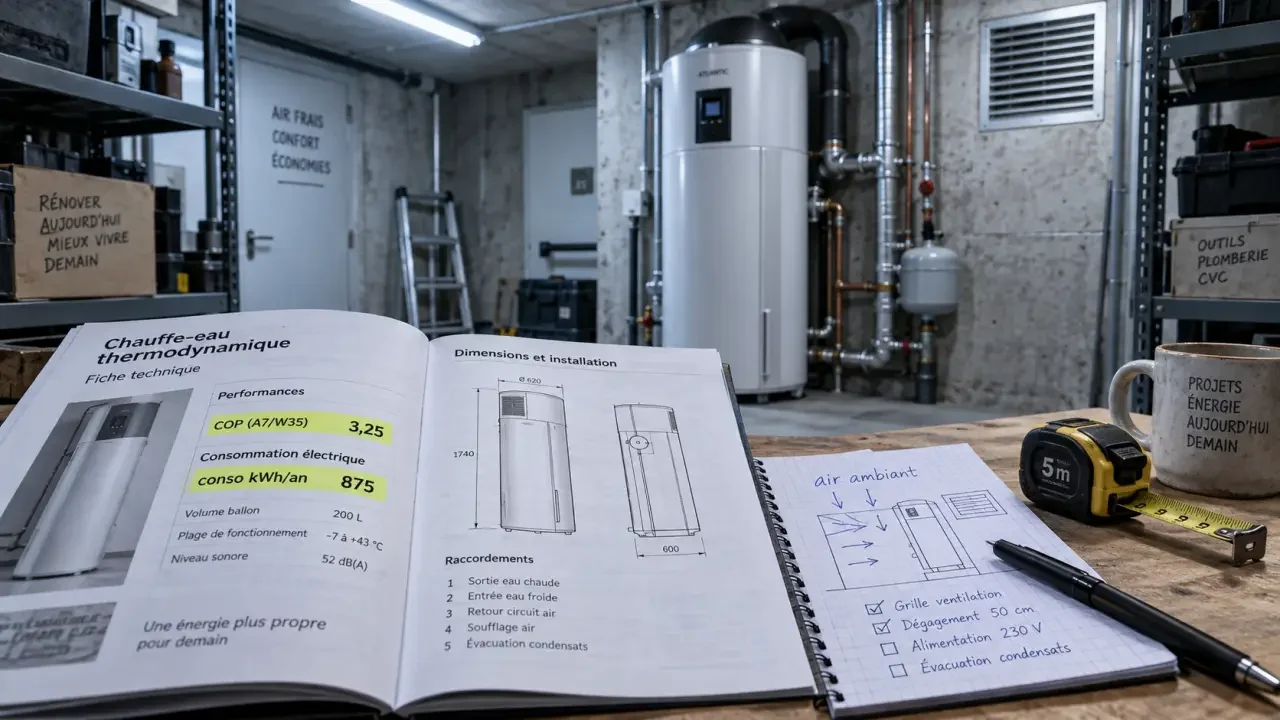 AIR FRAIS
CONFORT
ÉCONOMIES
RÉNOVER
AUJOURD'HUI
MIEUX VIVRE
DEMAIN
ATLANTIC
OUTILS
PLOMBERIE
CVC
PROJETS
ÉNERGIE
AUJOURD'HUI
DEMAIN
5 m
Chauffe-eau
thermodynamique
Fiche technique
Performances
COP (A7/W35) 3,25
Consommation électrique
conso kWh/an 875
Volume ballon 200 L
Plage de fonctionnement -7 à +43 °C
Niveau sonore 52 dB(A)
Une énergie plus propre
pour demain
Dimensions et installation
Ø 620
1740
600
Raccordements
1 Sortie eau chaude
2 Entrée eau froide
3 Retour circuit air
4 Soufflage air
5 Évacuation condensats
air ambiant
Grille ventilation
Dégagement 50 cm
Alimentation 230 V
Évacuation condensats